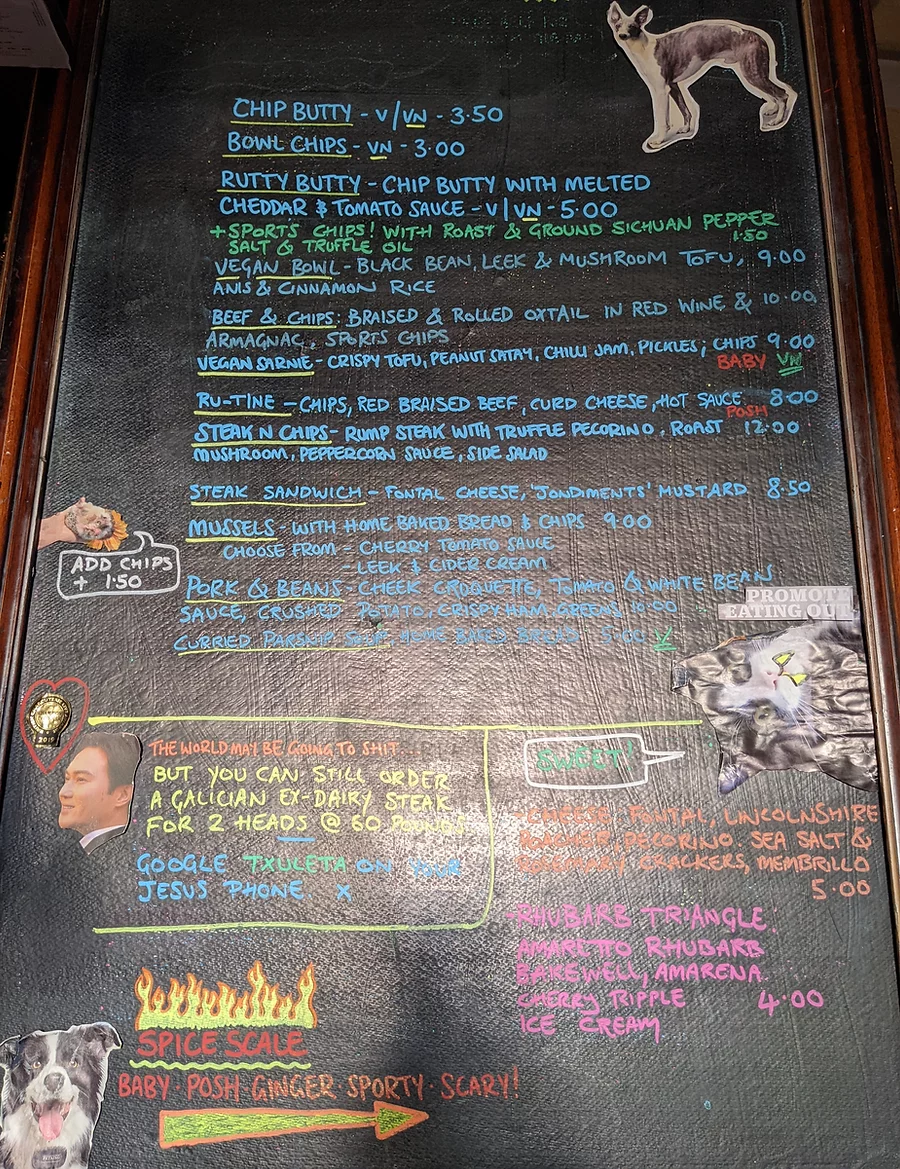 CHIP BUTTY - V/VN - 3.50
BOWL CHIPS - VN - 3.00
RUTTY BUTTY - CHIP BUTTY WITH MELTED
CHEDDAR & TOMATO SAUCE - V|VN - 5.00
+ SPORTS CHIPS! WITH ROAST & GROUND SICHUAN PEPPER
SALT & TRUFFLE OIL 1.50
VEGAN BOWL - BLACK BEAN, LEEK & MUSHROOM TOFU, 9.00
ANIS & CINNAMON RICE
BEEF & CHIPS: BRAISED & ROLLED OXTAIL IN RED WINE & 10.00
ARMAGNAC, SPORTS CHIPS
VEGAN SARNIE - CRISPY TOFU, PEANUT SATAY, CHILLI JAM, PICKLES, CHIPS 9.00
BABY VN
RU-TINE - CHIPS, RED BRAISED BEEF, CURD CHEESE, HOT SAUCE 8.00
POSH
STEAK N CHIPS - RUMP STEAK WITH TRUFFLE PECORINO, ROAST 12.00
MUSHROOM, PEPPERCORN SAUCE, SIDE SALAD
STEAK SANDWICH - FONTAL CHEESE, 'JONDIMENTS' MUSTARD 8.50
MUSSELS - WITH HOME BAKED BREAD & CHIPS 9.00
CHOOSE FROM - CHERRY TOMATO SAUCE
- LEEK & CIDER CREAM
ADD CHIPS
+ 1.50
PORK & BEANS - CHEEK CROQUETTE, TOMATO & WHITE BEAN
SAUCE, CRUSHED POTATO, CRISPY HAM, GREENS 10.00
CURRIED PARSNIP SOUP, HOME BAKED BREAD 5.00 V
PROMOTE
EATING OUT
THE WORLD MAY BE GOING TO SHIT
BUT YOU CAN STILL ORDER
A GALICIAN EX-DAIRY STEAK
FOR 2 HEADS @ 60 POUNDS
GOOGLE TXULETA ON YOUR
JESUS PHONE X
SWEET!
- CHEESE, FONTAL, LINCOLNSHIRE
POACHER, PECORINO. SEA SALT &
ROSEMARY CRACKERS, MEMBRILLO
5.00
- RHUBARB TRIANGLE:
AMARETTO RHUBARB
BAKEWELL, AMARENA
CHERRY RIPPLE 4.00
ICE CREAM
SPICE SCALE
BABY · POSH · GINGER · SPORTY · SCARY!